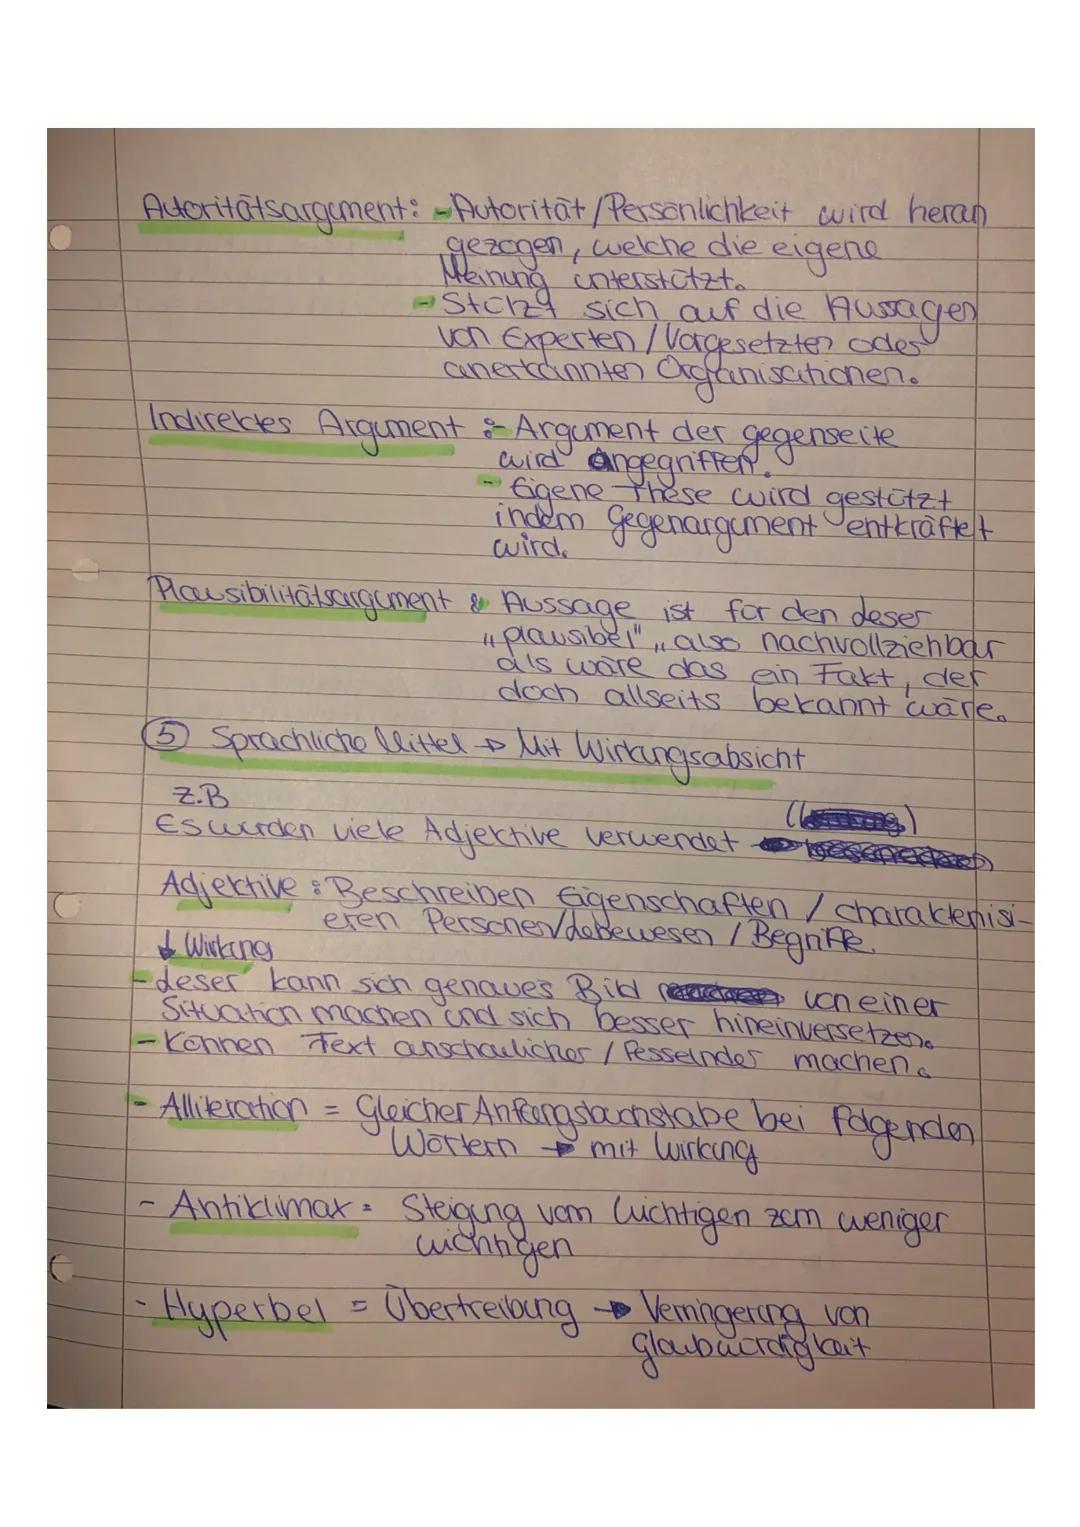 Autoritätsargument: - Autorität / Persönlichkeit wird heran
gezogen, welche die eigene
Meinung unterstützt.
- Stürzt sich auf die Aussagen
von Experten / Vorgesetzten oder
anerkannten Organisationen.
Indirektes Argument :- Argument der gegenseite
wird angegriffen.
- Eigene These wird gestützt
indem Gegenargument entkräftet
wird.
Plausibilitätsargument : Aussage ist für den Leser
"plausibel", also nachvollziehbar
als wäre das ein Fakt, der
doch allseits bekannt wäre.
5 Sprachliche Mittel → Mit Wirkungsabsicht
z.B
Es wurden viele Adjektive verwendet
Adjektive : Beschreiben Eigenschaften / charakterisi-
eren Personen/Lebewesen / Begriffe.
↓ Wirkung
- Leser kann sich genaues Bild von einer
Situation machen und sich besser hineinversetzen.
- Können Text anschaulicher / fesselnder machen.
- Alliteration = Gleicher Anfangsbuchstabe bei folgenden
Wörtern → mit Wirkung
- Antiklimax = Steigung vom Wichtigen zum weniger
wichtigen
- Hyperbel = Übertreibung → Verringerung von
Glaubwürdigkeit